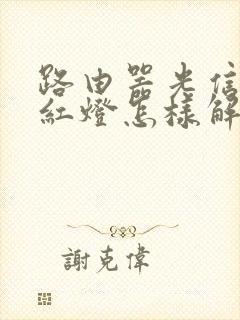 路由器光信
紅燈怎樣解
謝克偉